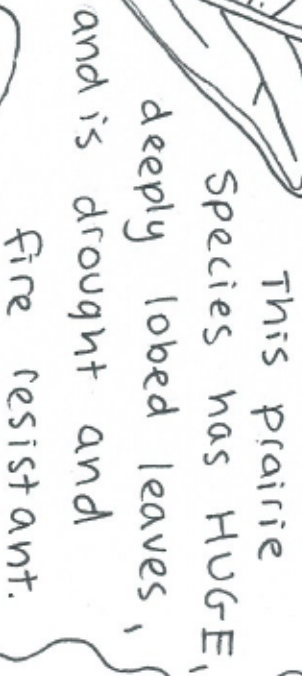 This prairie
species has HUGE,
deeply lobed leaves,
and is drought and
fire resistant.